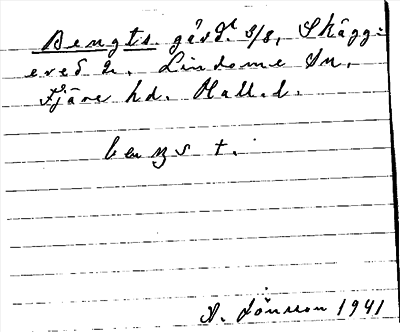 Bengts. gård. 5/8, Skägg=
ered 2. Lindome sn,
Fjäre hd. Hall. l.
benʒs t.
A. Jönsson 1941